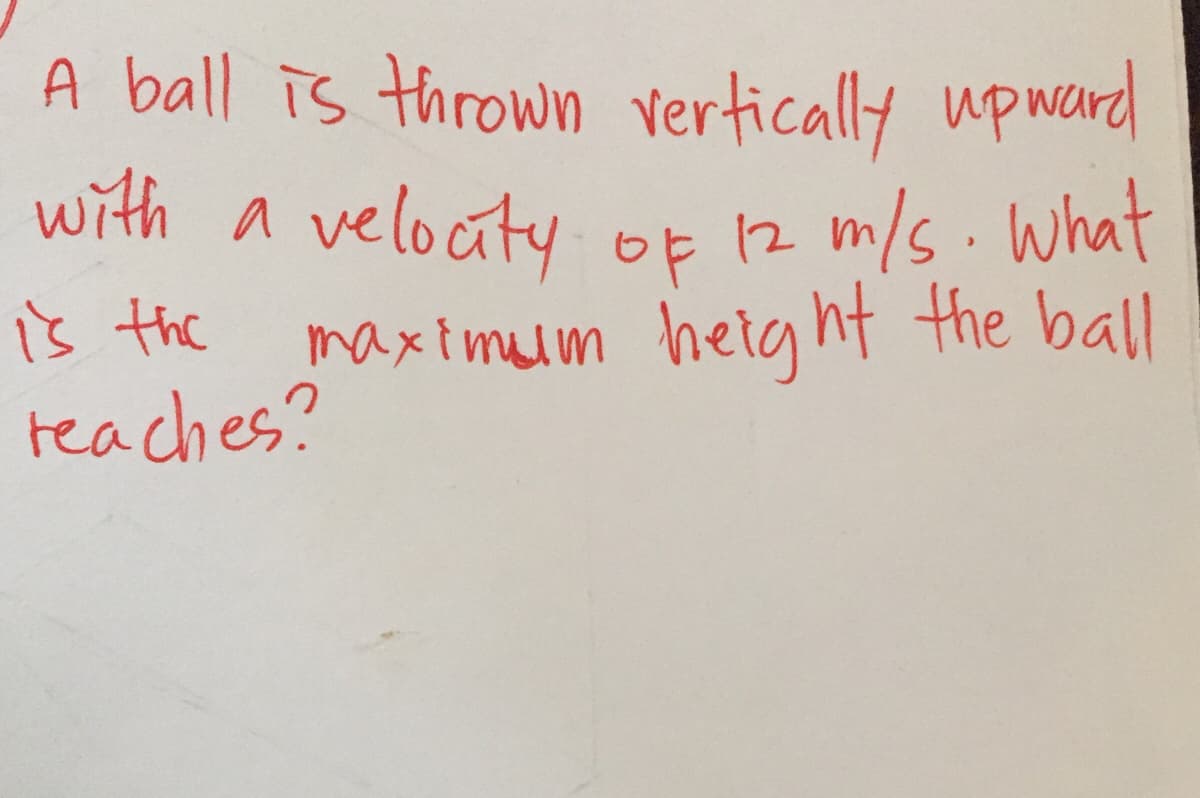 A ball is thrown vertically upward
with a velocity of 12 m/s. What
is the maximum height the ball
reaches?